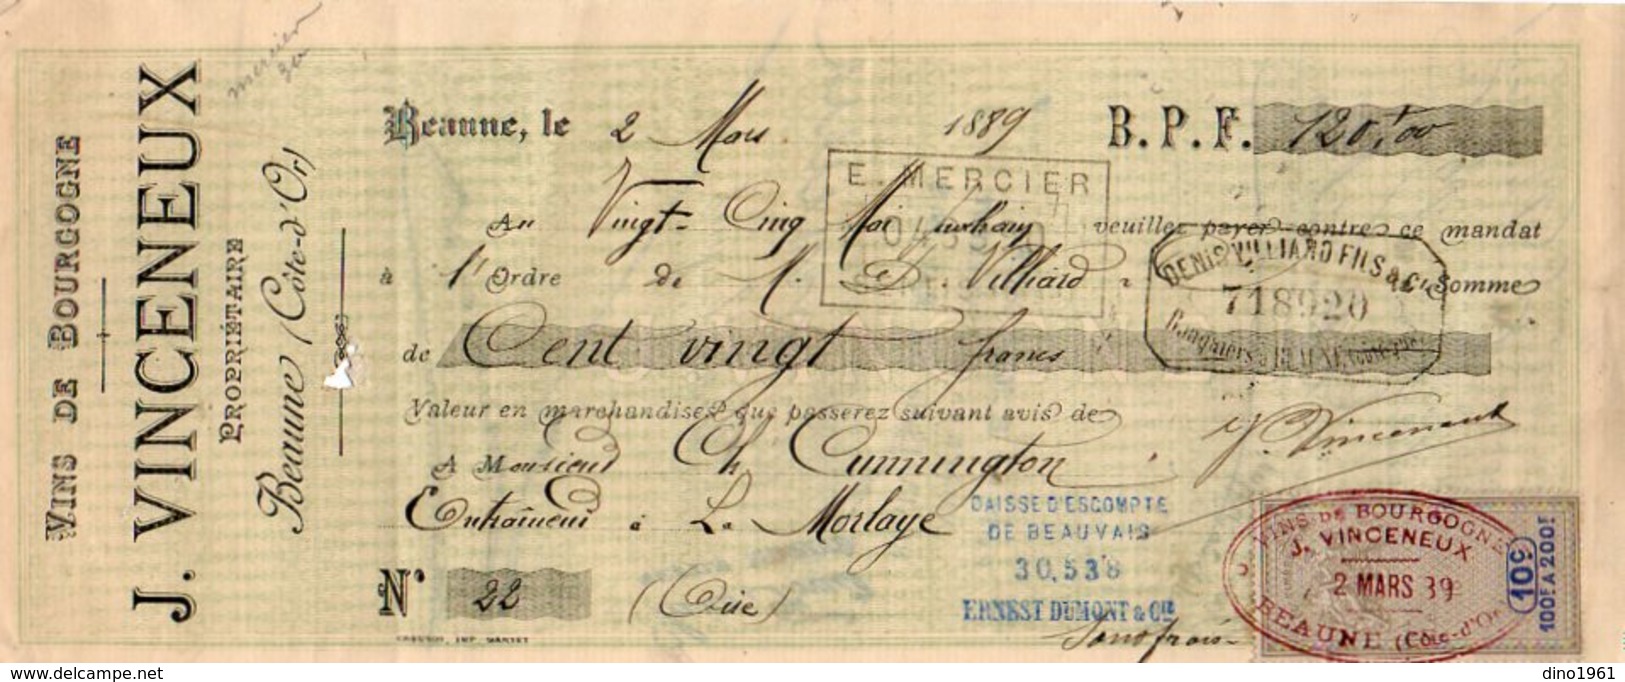 VINS DE BOURGOGNE
J. VINCENEUX
PROPRIÉTAIRE
Beaune (Côte-d'Or)
mercier
Beaune, le 2 Mars 1889 B.P.F. 120,00
E. MERCIER
Au Vingt-Cinq Mai prochain veuillez payer contre ce mandat
à l'Ordre de M. D. Villiard la Somme
DENIS VILLIARD FILS & Cie
718920
Banquiers à BEAUNE
de Cent vingt francs
Valeur en marchandises que passerez suivant avis de
J. Vinceneux
A Monsieur Ch Cunnington
Entraîneur à La Morlaye
CAISSE D'ESCOMPTE
DE BEAUVAIS
30,538
ERNEST DUMONT & CIE
N° 22 (Oise)
Sans frais
VINS DE BOURGOGNE
J. VINCENEUX
2 MARS 89
BEAUNE (Côte-d'Or)
10c
100F A 200F
dino1961